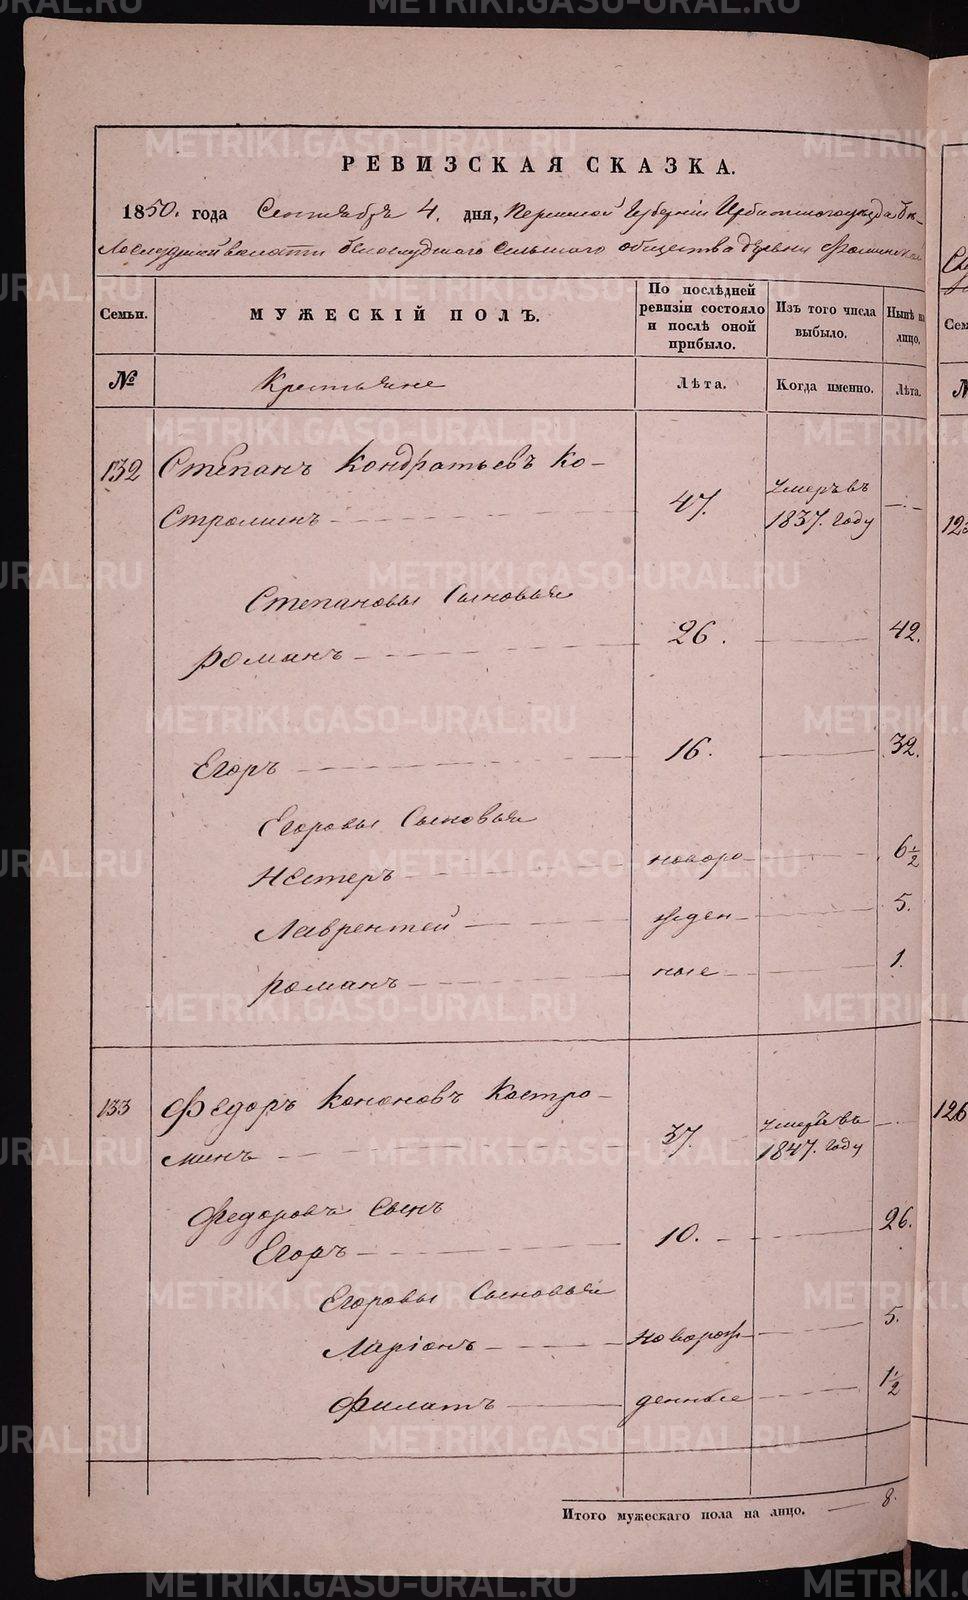 РЕВИЗСКАЯ СКАЗКА.
1850. года Сентября 4. дня, Пермской Губернии Ирбитского уезда Бѣ-
лослудской волости Белослудского Сельского общества деревни Фоминской
Семьи. МУЖЕСКІЙ ПОЛЪ. По послѣдней ревизіи состояло и послѣ оной прибыло. Изъ того числа выбыло. Нынѣ на лицо.
№ Крестьяне Лѣта. Когда именно. Лѣта.
132 Степанъ Кондратьевъ Ко-
Строминъ 47. умеръ въ 1837. году
Степановы Сыновья
Романъ 26. 42.
Егоръ 16. 32.
Егоровы Сыновья
Нестеръ новоро 6 1/2
Лаврентей жден 5.
Романъ ные 1.
133 Федоръ Кононовъ Костро-
минъ 37. умеръ въ 1847. году
Федоровъ Сынъ
Егоръ 10. 26.
Егоровы Сыновья
Ларіонъ новорож 5.
Филатъ денные 1 1/2
Итого мужескаго пола на лицо. 8.
126
METRIKI.GASO-URAL.RU